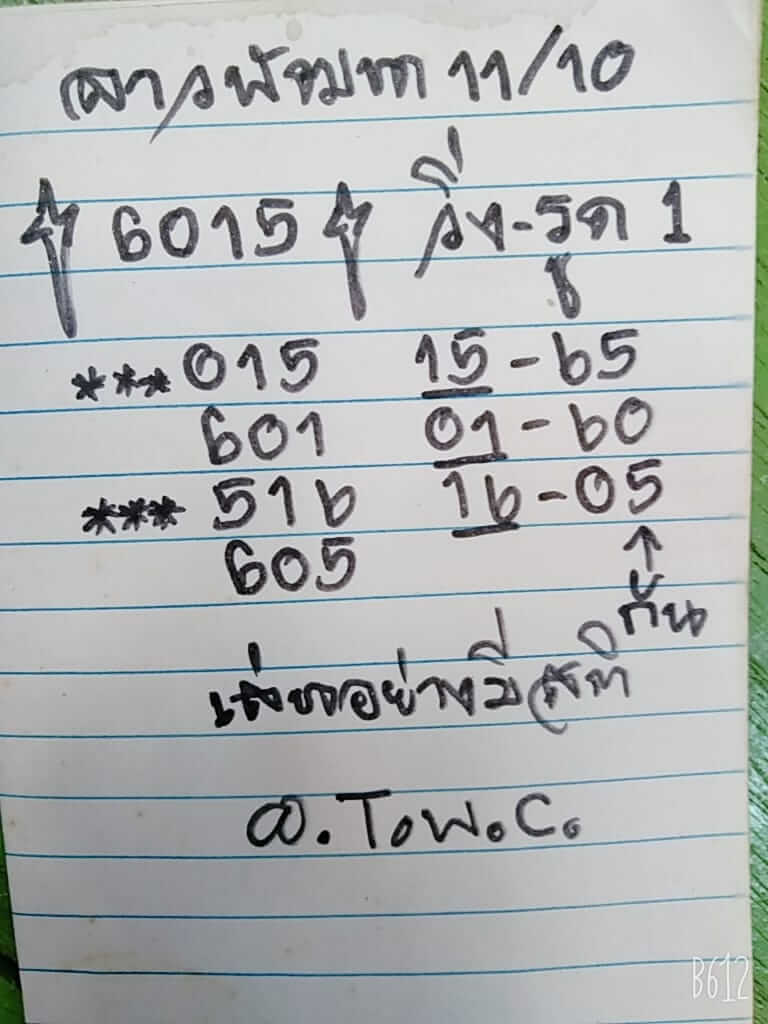 ลาวพัฒนา 11/10
6015 วิ่ง-รูด 1
*** 015 15-65
601 01-60
*** 516 16-05
605 ↑
กัน
เสี่ยงอย่างมีสติ
อ.T.W.C.
B612